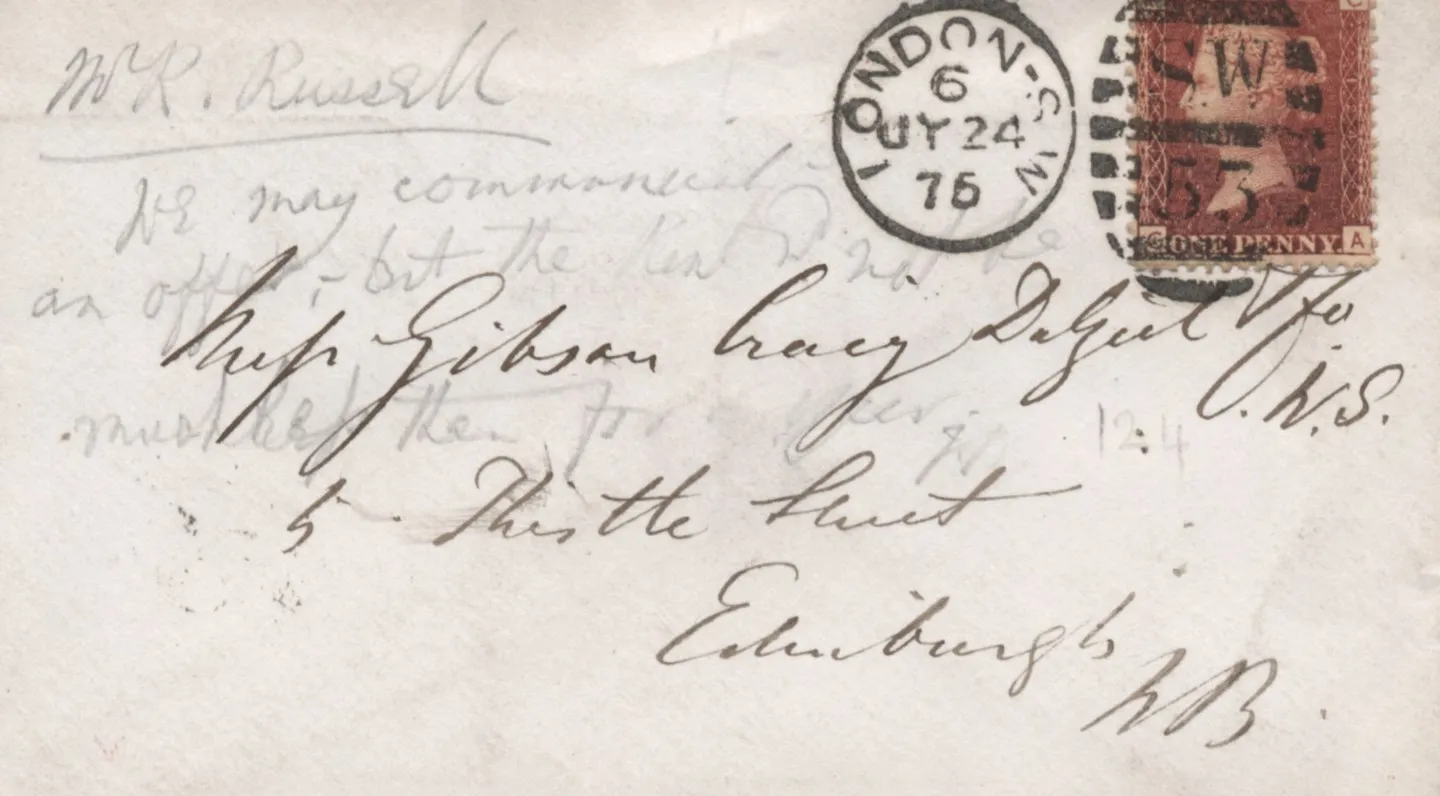 Mr R. Russell
We may communicate
an offer, – but the
must
then for a
124
LONDON-S.W
6
JY 24
76
SW
53
C
G ONE PENNY A
Messrs Gibson Craig Dalziel &
W.S.
5 Thistle Street
Edinburgh
NB.